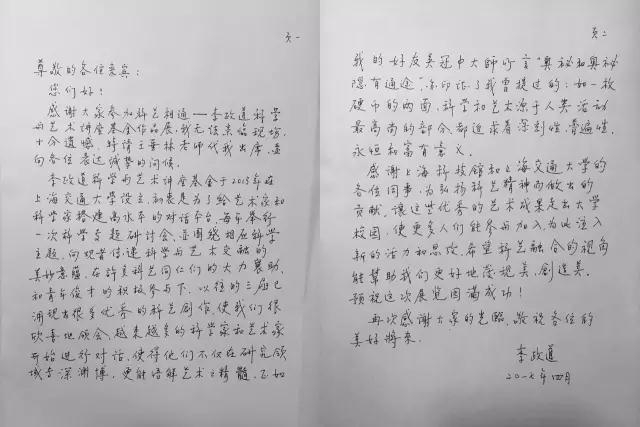 页一
尊敬的各位来宾:
您们好!
感谢大家参加科艺相通——李政道科学
与艺术讲座基金作品展,我无法亲临现场,
十分遗憾,特请主要林老师代我出席,並
向各位表达诚挚的问候。
李政道科学与艺术讲座基金于2013年在
上海交通大学设立,初衷是为了给艺术家和
科学家搭建高水平的对话平台,每年举行
一次科学专题研讨会,並围绕相应科学
主题,向观者传递科学与艺术交融的
美妙意蕴。在许多科艺同仁们的大力襄助、
和青年俊才的积极参与下,以往的三届已
涌现出很多优秀的科艺创作,使我们很
欣喜地领会,越来越多的科学家和艺术家
开始进行对话,使得他们不仅在研究领
域专深渊博,更能悟解艺术之精髓,正如
页二
我的好友吴冠中大师所言“奥秘和奥秘
隐有通途”,亦印证了我曾提过的:如一枚
硬币的两面,科学和艺术源于人类活动
最高尚的部分,都追求着深刻性、普遍性、
永恒和富有意义。
感谢上海科技馆和上海交通大学的
各位同事,为弘扬科艺精神而做出的
贡献。让这些优秀的艺术成果走出大学
校园,使更多人们能参与加入,为此注入
新的活力和思考,希望科艺融合的视角
能幫助我们更好地发现美,創造美。
预祝这次展览圆满成功!
再次感谢大家的光临,敬祝各位的
美好将来。
李政道
二〇一七年四月